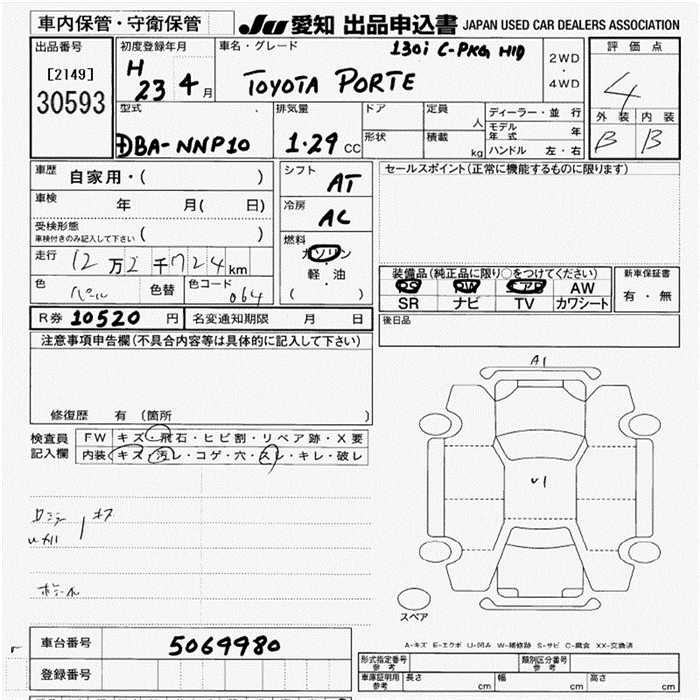 車内保管・守衛保管 JU 愛知 出品申込書 JAPAN USED CAR DEALERS ASSOCIATION
出品番号 初度登録年月 車名・グレード 130i C-PKG HID 2WD・4WD 評価点
[2149] 30593 H 23 4月 TOYOTA PORTE 4
型式 排気量 ドア 定員 人 ディーラー・並行 外装 内装
DBA-NNP10 1.29 CC 形状 積載 kg モデル年式 年 B B
ハンドル 左・右
車歴 自家用・( ) シフト AT セールスポイント(正常に機能するものに限ります)
車検 年 月( 日) 冷房 AC
受検形態 ( )
車検付きのみ記入して下さい
燃料 ガソリン・軽・油 ( )
走行 12万2千724km
色 パール 色替 色コード 064
装備品(純正品に限り○をつけてください) 新車保証書
PS PW エアB AW 有・無
SR ナビ TV カワシート
R券 10520 円 名変通知期限 月 日 後日品
注意事項申告欄(不具合内容等は具体的に記入して下さい)
修復歴 有 (箇所 )
検査員記入欄 FW キズ・飛石・ヒビ割・リペア跡・X要
内装 キズ・汚レ・コゲ・穴・スレ・キレ・破レ
A1
U1
スペア
A-キズ E-エクボ U-凹み W-補修跡 S-サビ C-腐食 XX-交換済
車台番号 5069980
登録番号
形式指定番号 参考 類別区分番号 参考
車庫証明用 参考 長さ cm 幅 cm 高さ cm